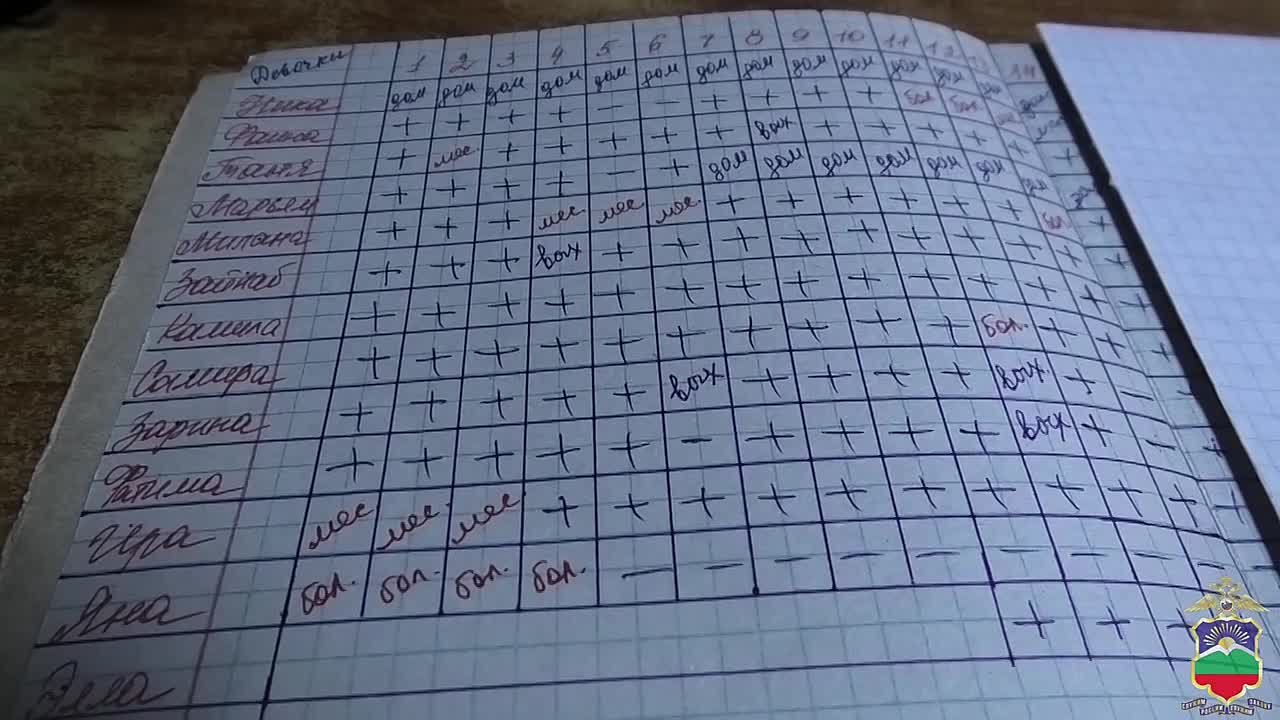 Девочки 1 2 3 4 5 6 7 8 9 10 11 12 14
Ника дом дом дом дом дом дом дом дом дом дом дом дом
+ + + + − − + + + + бол бол
Таня + мес. + + + + + вых + + + +
Марьям + + + + − + дом дом дом дом дом дом
Милана + + + мес. мес мес. + + + + + + бол
Зайнаб + + + вых + + + + + + + +
Камила + + + + + + + + + + + +
Самира + + + + + + + + + + бол. +
Зарина + + + + + вых + + + + вых +
Фатима + + + + + − + + + + вых +
Ира мес мес мес + + + + + + + + +
Яна бол. бол. бол. бол. − − − − − − − −
Элла + +